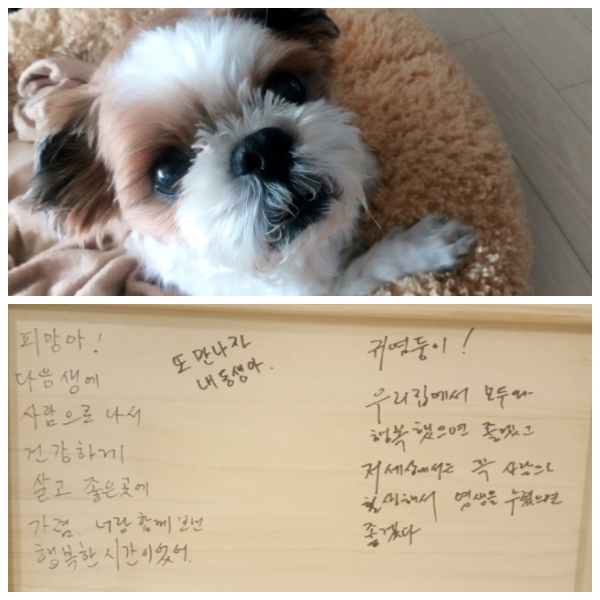 피망아!
다음생에
사람으로 나서
건강하게
살고 좋은곳에
가렴. 너랑 함께 보낸
행복한 시간이었어.
또 만나자
내동생아.
귀염둥이!
우리집에서 모두와
행복했으면 좋겠고
저세상에서는 꼭 사람으로
환생해서 영생을 누렸으면
좋겠다